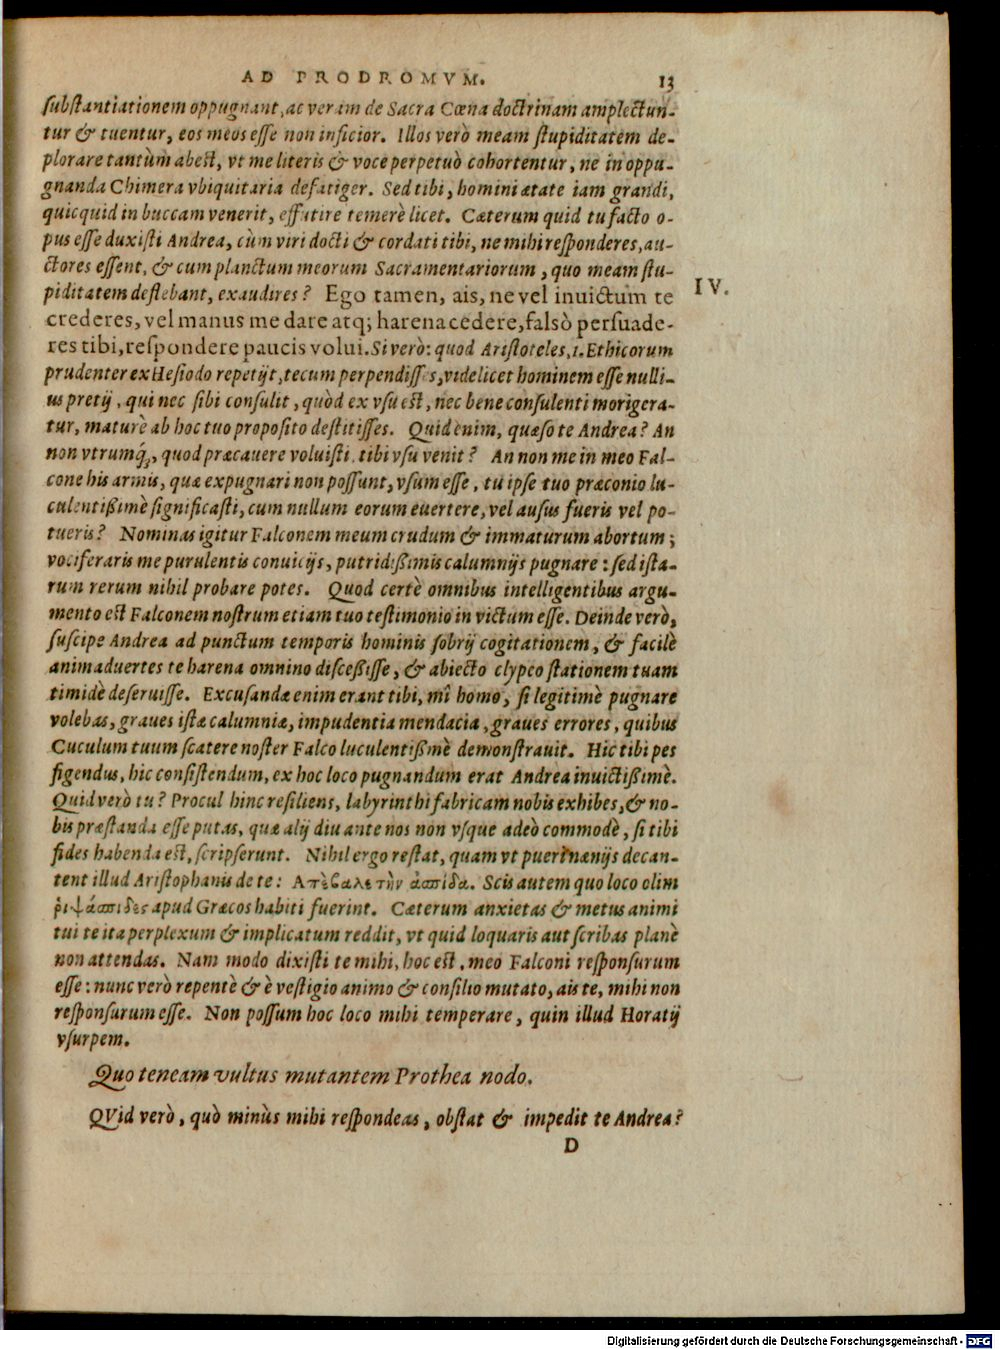 AD PRODROMVM. 13
ſubſtantiationem oppugnant, ac veram de Sacra Cœna doctrinam amplectun-
tur & tuentur, eos meos eſſe non inficior. Illos verò meam ſtupiditatem de-
plorare tantùm abeſt, vt me literis & voce perpetuò cohortentur, ne in oppu-
gnanda Chimera vbiquitaria defatiger. Sed tibi, homini ætate iam grandi,
quicquid in buccam venerit, effutire temerè licet. Cæterum quid tu facto o-
pus eſſe duxiſti Andrea, cùm viri docti & cordati tibi, ne mihi reſponderes, au-
ctores eſſent, & cum planctum meorum Sacramentariorum, quo meam ſtu-
piditatem deflebant, exaudires? Ego tamen, ais, ne vel inuictum te
IV.
crederes, vel manus me dare atq; harena cedere, falsò perſuade-
res tibi, reſpondere paucis volui. Si verò: quod Ariſtoteles, 1. Ethicorum
prudenter ex Heſiodo repetijt, tecum perpendiſſes, videlicet hominem eſſe nulli-
us pretij, qui nec ſibi conſulit, quòd ex vſu eſt, nec bene conſulenti morigera-
tur, maturè ab hoc tuo propoſito deſtitiſſes. Quid enim, quæſo te Andrea? An
non vtrumq́;, quod præcauere voluiſti, tibi vſu venit? An non me in meo Fal-
cone his armis, quæ expugnari non poſſunt, vſum eſſe, tu ipſe tuo præconio lu-
culentißimè ſignificaſti, cum nullum eorum euertere, vel auſus fueris vel po-
tueris? Nominas igitur Falconem meum crudum & immaturum abortum;
vociferaris me purulentis conuicijs, putridißimis calumnijs pugnare: ſed iſta-
rum rerum nihil probare potes. Quod certè omnibus intelligentibus argu-
mento eſt Falconem noſtrum etiam tuo teſtimonio in victum eſſe. Deinde verò,
ſuſcipe Andrea ad punctum temporis hominis ſobrij cogitationem, & facilè
animaduertes te harena omnino diſceßiſſe, & abiecto clypeo ſtationem tuam
timidè deſeruiſſe. Excuſandæ enim erant tibi, mî homo, ſi legitimè pugnare
volebas, graues iſtæ calumniæ, impudentia mendacia, graues errores, quibus
Cuculum tuum ſcatere noſter Falco luculentißimè demonſtrauit. Hic tibi pes
figendus, hic conſiſtendum, ex hoc loco pugnandum erat Andrea inuictißimè.
Quid verò tu? Procul hinc reſiliens, labyrinthi fabricam nobis exhibes, & no-
bis præſtanda eſſe putas, quæ alij diu ante nos non vſque adeò commodè, ſi tibi
fides habenda eſt, ſcripſerunt. Nihil ergo reſtat, quam vt pueri næniis decan-
tent illud Ariſtophanis de te: Ἀπέβαλε τὴν ἀσπίδα. Scis autem quo loco olim
ῥιψάσπιδες apud Græcos habiti fuerint. Cæterum anxietas & metus animi
tui te ita perplexum & implicatum reddit, vt quid loquaris aut ſcribas planè
non attendas. Nam modo dixiſti te mihi, hoc eſt, meo Falconi reſponſurum
eſſe: nunc verò repentè & è veſtigio animo & conſilio mutato, ais te, mihi non
reſponſurum eſſe. Non poſſum hoc loco mihi temperare, quin illud Horatij
vſurpem.
Quo teneam vultus mutantem Prothea nodo.
QVid verò, quò minùs mihi reſpondeas, obſtat & impedit te Andrea?
D
Digitalisierung gefördert durch die Deutsche Forschungsgemeinschaft - DFG